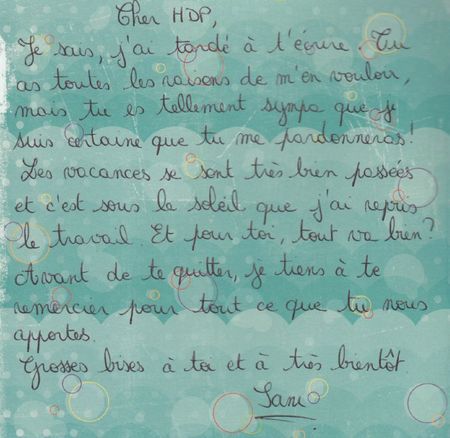 Cher HDP,
Je sais, j'ai tardé à t'écrire. Tu
as toutes les raisons de m'en vouloir,
mais tu es tellement sympa que je
suis certaine que tu me pardonneras!
Les vacances se sont très bien passées
et c'est sous le soleil que j'ai repris
le travail. Et pour toi, tout va bien?
Avant de te quitter, je tiens à te
remercier pour tout ce que tu nous
apportes.
Grosses bises à toi et à très bientôt.